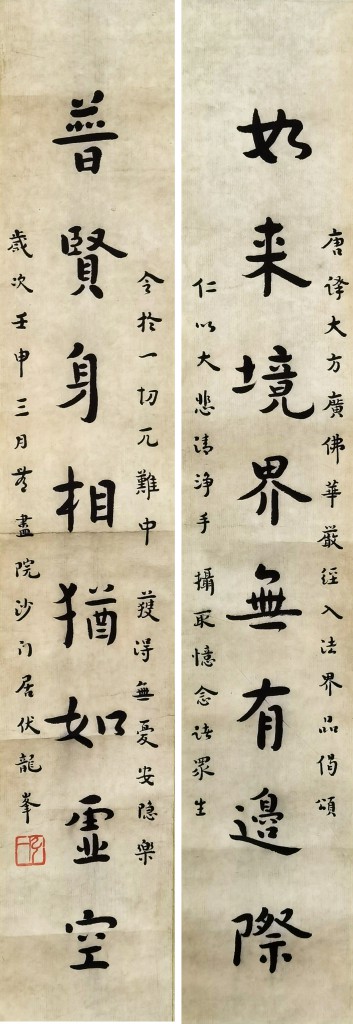 唐译大方廣佛華嚴經入法界品偈頌
如来境界無有邊際
仁以大悲清淨手 攝取憶念諸眾生
令於一切厄難中 獲得無憂安隐樂
普賢身相猶如虛空
歲次壬申三月 盡院沙门居伏龍峯